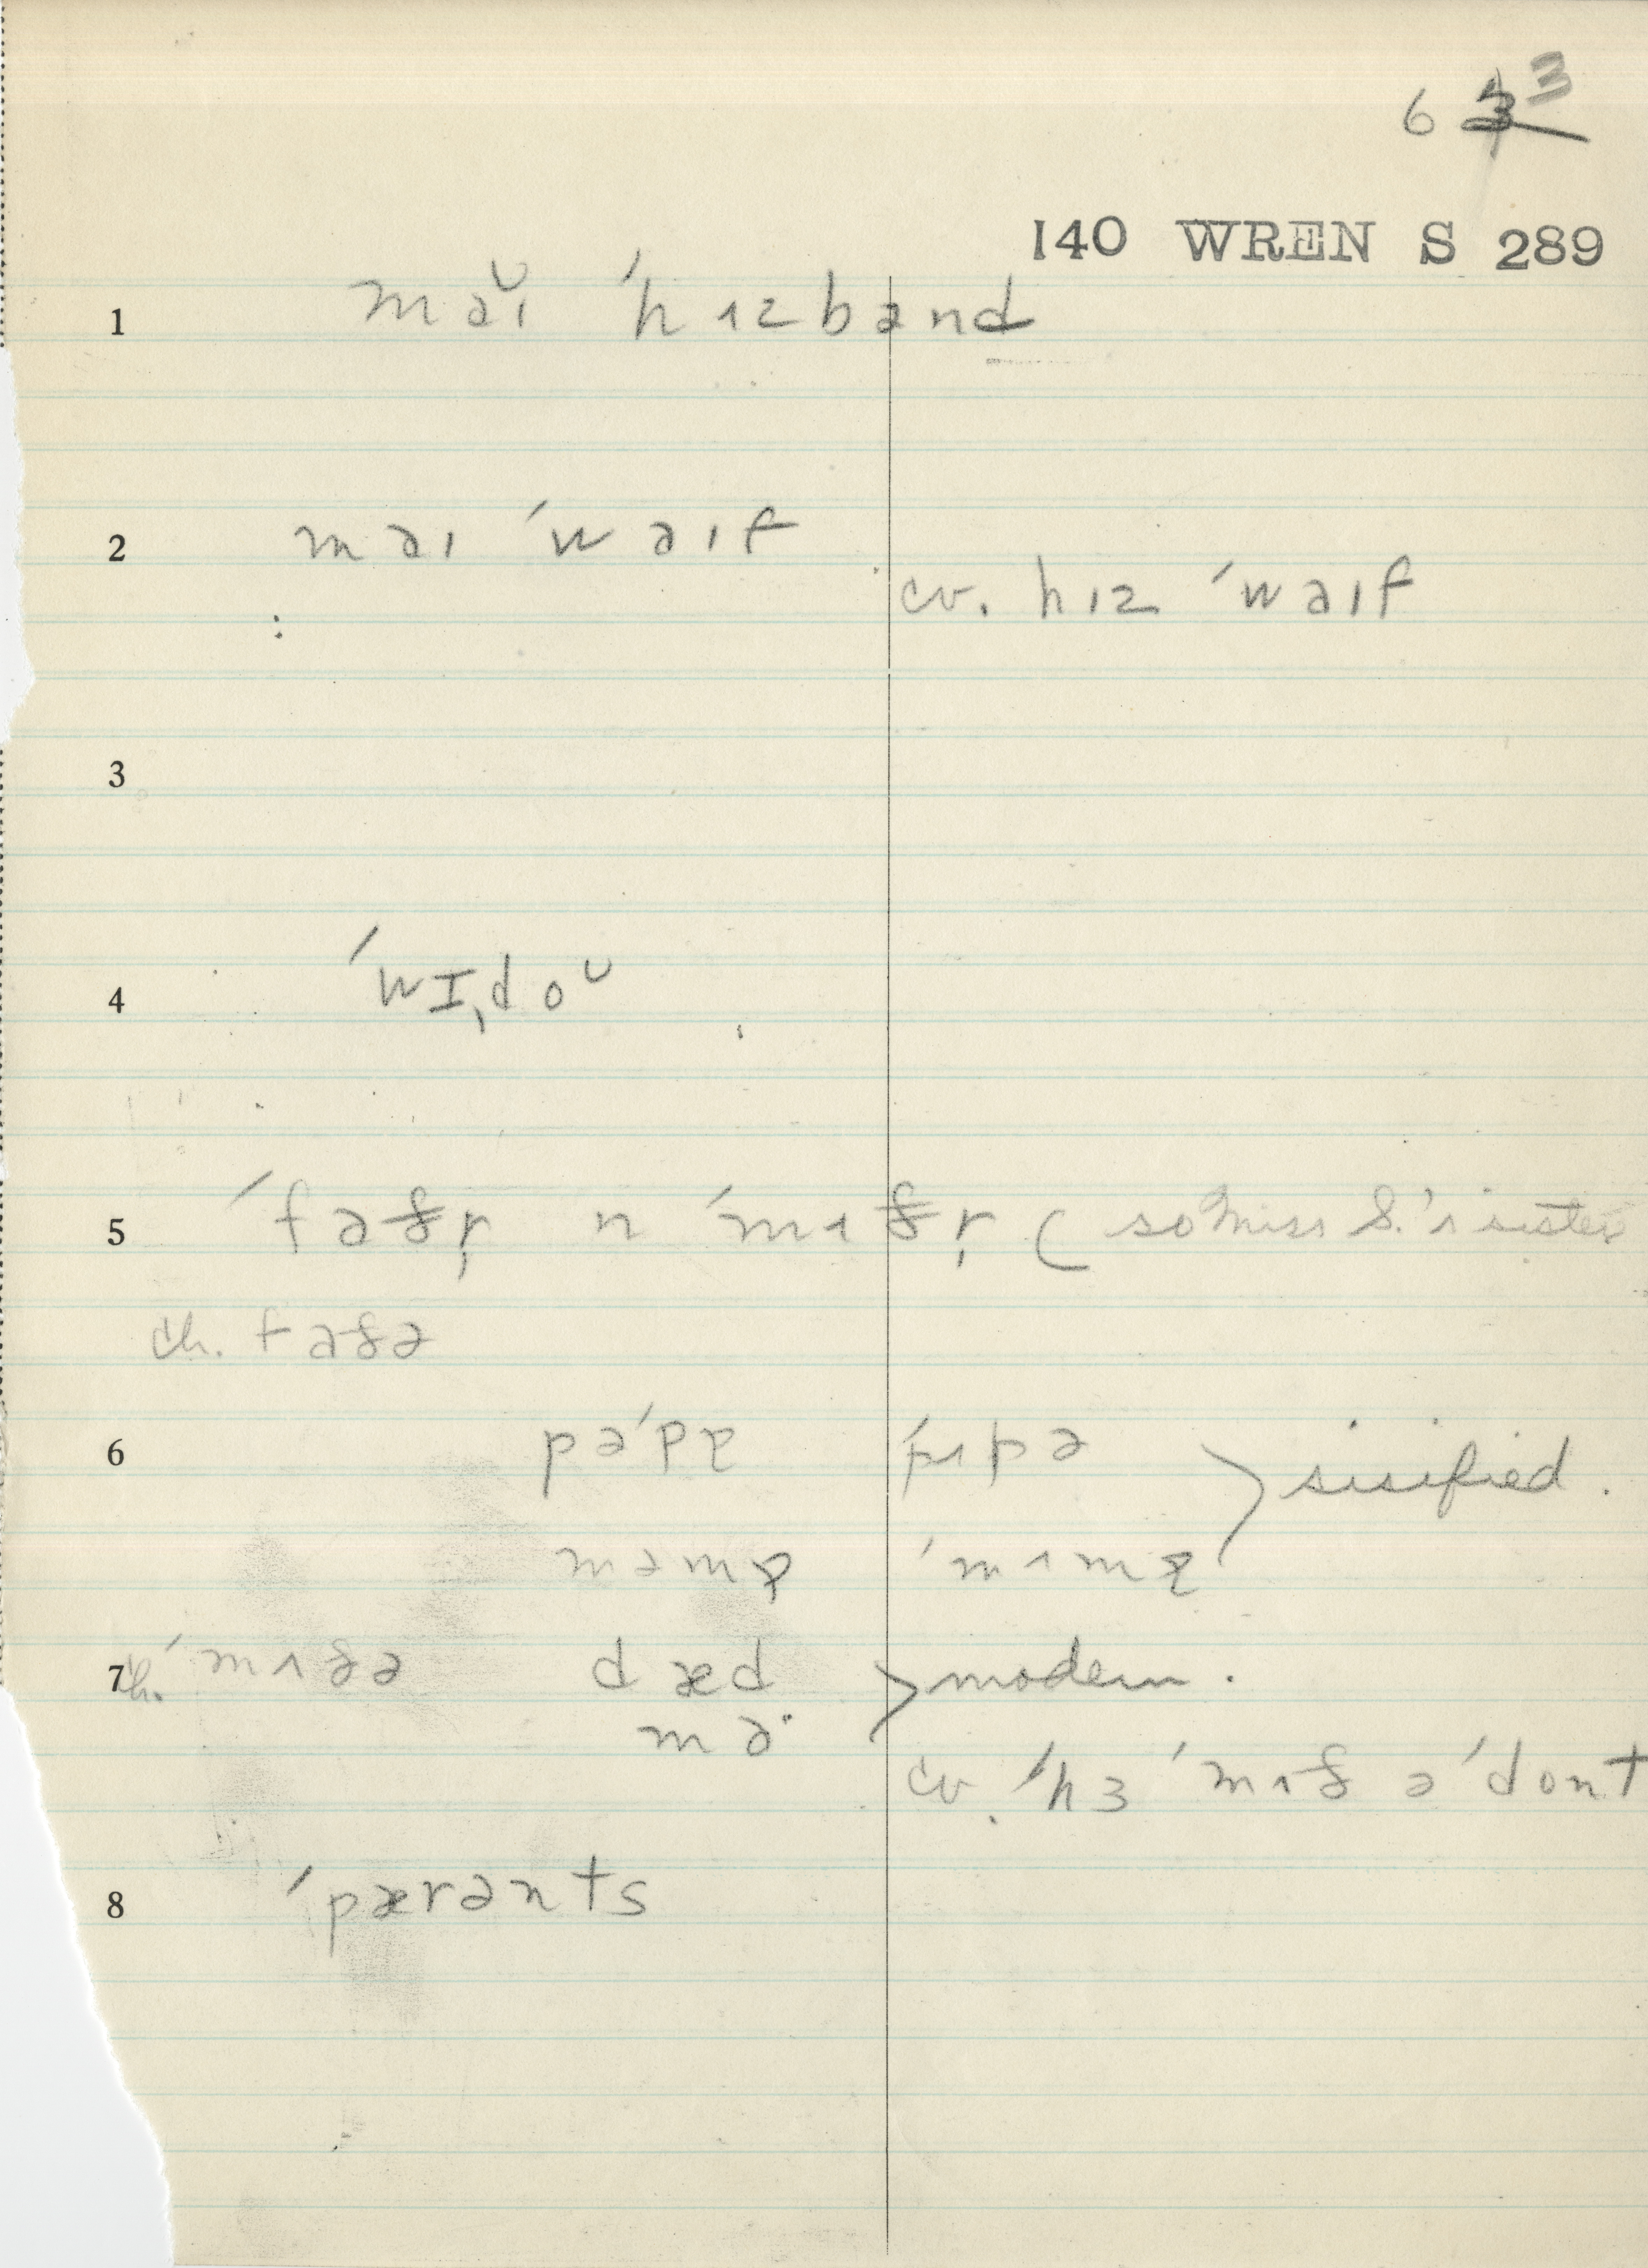 6 3
140 WREN S 289
1 maĭ ˈhʌzbənd
2 maɪ ˈwaɪf
cv. hɪz ˈwaɪf
3
4 ˈwɪˌdoᴜ
5 ˈfaðr̩ n ˈmʌðr̩ (so Miss S.'s sister
ch. faðə
6 pəˈpɐ ˈpʌpə > sisified.
məmɐ ˈmʌmɐ
7 ch. ˈmʌðə dæd > modern.
ma·
cv. ˈhɜ ˈmʌð ə ˈdont
8 ˈpærənts